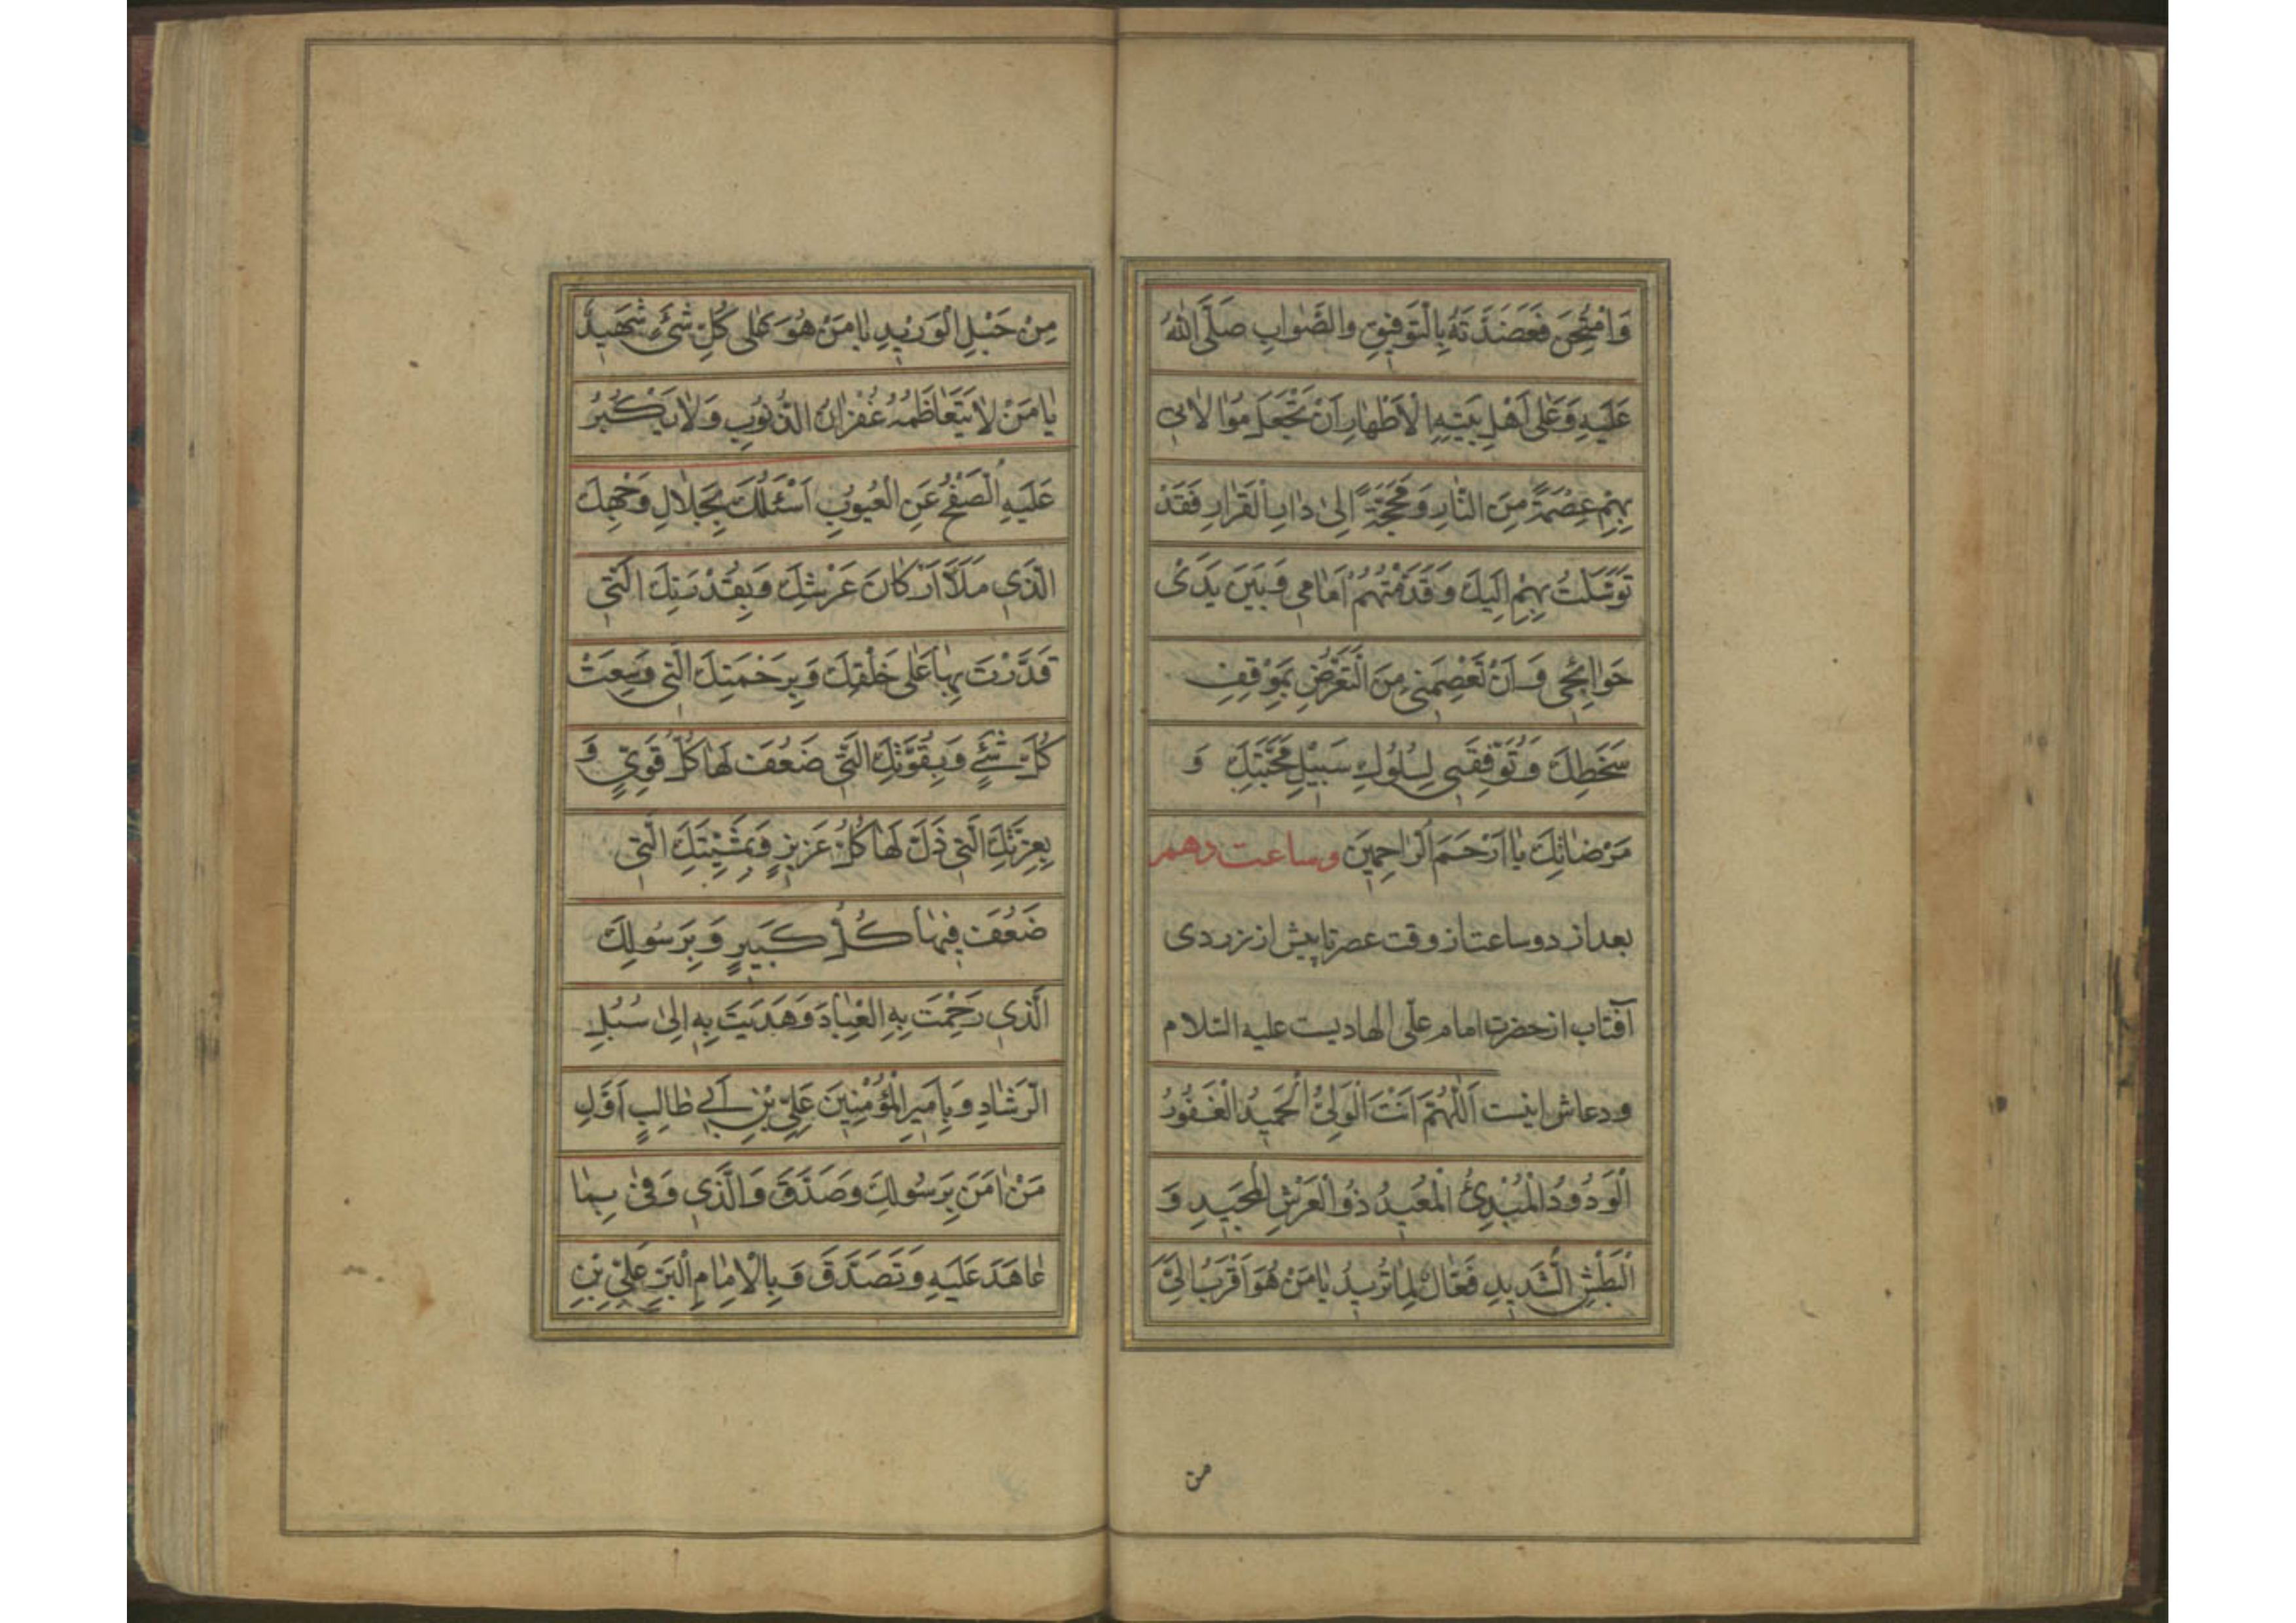 وَامْتُحِنَ فَعَضَدْتَهُ بِالتَّوْفِيقِ وَالصَّوابِ صَلَّى اللهُ
عَلَيْهِ وَعَلى اَهْلِ بَيْتِهِ الْاَطْهارِ اَنْ تَجْعَلَ مُوالاتى
بِهِمْ عِصْمَةً مِنَ النّارِ وَمَحَجَّةً اِلىٰ دارِ الْقَرارِ فَقَدْ
تَوَسَّلْتُ بِهِمْ اِلَيْكَ وَقَدَّمْتُهُمْ اَمامي وَبَيْنَ يَدَىْ
حَوائِجي وَاَنْ تَعْصِمَني مِنَ التَّعَرُّضِ بِمَوْقِفِ
سَخَطِكَ وَتُوَفِّقَنى لِسُلُوكِ سَبيْلِ مَحَبَّتِكَ وَ
مَرْضاتِكَ يا اَرْحَمَ الرّاحِمِيْنَ وساعت دهم
بعد از دو ساعت از وقت عصر تا پیش از زردی
آفتاب از حضرت امام علی الهادیست علیه السلام
ودعاش اینست اَللّٰهُمَّ اَنْتَ الْوَلِىُّ الْحَمِيدُ الْغَفُورُ
الْوَدُودُ الْمُبْدِئُ الْمُعِيدُ ذُو الْعَرْشِ الْمَجِيدِ وَ
الْبَطْشِ الشَّدِيدِ فَعّالٌ لِما تُرِيدُ يا مَنْ هُوَ اَقْرَبُ اِلَىَّ
من
مِنْ حَبْلِ الْوَرِيْدِ يا مَنْ هُوَ عَلى كُلِّ شَئٍ شَهِيدٌ
يا مَنْ لا يَتَعاظَمُهُ غُفْرانُ الذُّنُوبِ وَلا يَكْبُرُ
عَلَيْهِ الصَّفْحُ عَنِ الْعُيُوبِ اَسْئَلُكَ بِجَلالِ وَجْهِكَ
الَّذي مَلَأَ اَرْكانَ عَرْشِكَ وَبِقُدْرَتِكَ الَّتي
قَدَّرْتَ بِها عَلى خَلْقِكَ وَبِرَحْمَتِكَ الَّتي وَسِعَتْ
كُلَّ شَئٍ وَبِقُوَّتِكَ الَّتي ضَعُفَ لَها كُلُّ قَوِيٍّ وَ
بِعِزَّتِكَ الَّتي ذَلَّ لَها كُلُّ عَزِيزٍ وَبِمَشِيَّتِكَ الَّتي
ضَعُفَ فِيها كُلُّ كَبِيرٍ وَبِرَسُولِكَ
الَّذي رَحِمْتَ بِهِ الْعِبادَ وَهَدَيْتَ بِهِ اِلىٰ سُبُلِ
الرَّشادِ وَبِاَمِيرِ الْمُؤْمِنِينَ عَلِيِّ بْنِ اَبي طالِبٍ اَوَّلِ
مَنْ اٰمَنَ بِرَسُولِكَ وَصَدَّقَ وَالَّذي وَفىٰ بِما
عاهَدَ عَلَيْهِ وَتَصَدَّقَ وَبِالْاِمامِ الْبَرِّ عَلِيِّ بْنِ